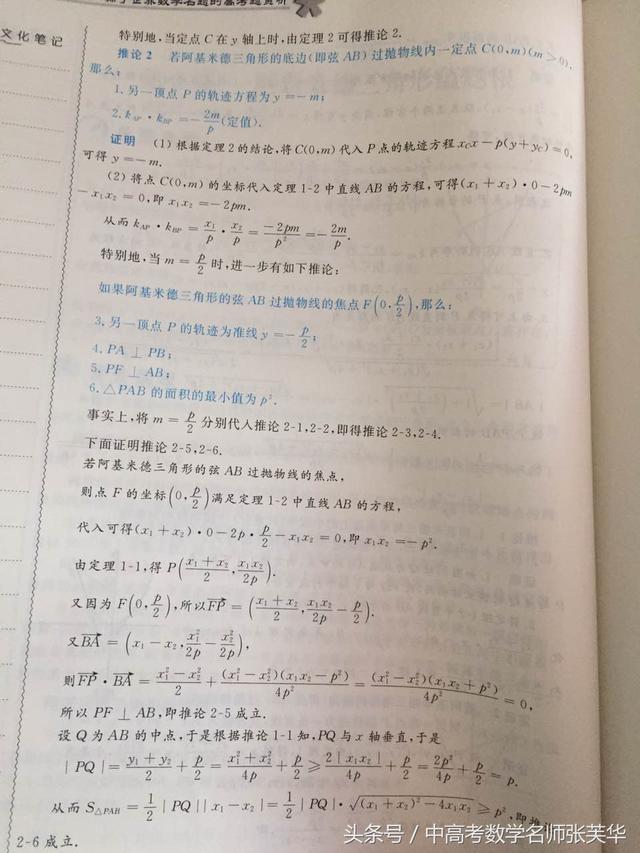 文化笔记
特别地,当定点 C 在 y 轴上时,由定理 2 可得推论 2.
推论 2 若阿基米德三角形的底边(即弦 AB)过抛物线内一定点 C(0,m)(m>0),
那么:
1. 另一顶点 P 的轨迹方程为 y=-m;
2. k_{AP}·k_{BP}=-\frac{2m}{p}(定值).
证明 (1) 根据定理 2 的结论,将 C(0,m) 代入 P 点的轨迹方程 x_Cx-p(y+y_C)=0,
可得 y=-m.
(2) 将点 C(0,m) 的坐标代入定理 1-2 中直线 AB 的方程,可得(x_1+x_2)·0-2pm
-x_1x_2=0,即 x_1x_2=-2pm.
从而 k_{AP}·k_{BP}=\frac{x_1}{p}·\frac{x_2}{p}=\frac{-2pm}{p^2}=-\frac{2m}{p}.
特别地,当 m=\frac{p}{2} 时,进一步有如下推论:
如果阿基米德三角形的弦 AB 过抛物线的焦点 F(0,\frac{p}{2}),那么:
3. 另一顶点 P 的轨迹为准线 y=-\frac{p}{2};
4. PA⊥PB;
5. PF⊥AB;
6. △PAB 的面积的最小值为 p^2.
事实上,将 m=\frac{p}{2} 分别代入推论 2-1,2-2,即得推论 2-3,2-4.
下面证明推论 2-5,2-6.
若阿基米德三角形的弦 AB 过抛物线的焦点,
则点 F 的坐标(0,\frac{p}{2})满足定理 1-2 中直线 AB 的方程,
代入可得(x_1+x_2)·0-2p·\frac{p}{2}-x_1x_2=0,即 x_1x_2=-p^2.
由定理 1-1,得 P(\frac{x_1+x_2}{2},\frac{x_1x_2}{2p}).
又因为 F(0,\frac{p}{2}),所以\overrightarrow{FP}=(\frac{x_1+x_2}{2},\frac{x_1x_2}{2p}-\frac{p}{2}).
又\overrightarrow{BA}=(x_1-x_2,\frac{x_1^2}{2p}-\frac{x_2^2}{2p}),
则\overrightarrow{FP}·\overrightarrow{BA}=\frac{x_1^2-x_2^2}{2}+\frac{(x_1^2-x_2^2)(x_1x_2-p^2)}{4p^2}=\frac{(x_1^2-x_2^2)(x_1x_2+p^2)}{4p^2}=0,
所以 PF⊥AB,即推论 2-5 成立.
设 Q 为 AB 的中点,于是根据推论 1-1 知,PQ 与 x 轴垂直,于是
|PQ|=\frac{y_1+y_2}{2}+\frac{p}{2}=\frac{x_1^2+x_2^2}{4p}+\frac{p}{2}≥\frac{2|x_1x_2|}{4p}+\frac{p}{2}=\frac{2p^2}{4p}+\frac{p}{2}=p.
从而 S_{△PAH}=\frac{1}{2}|PQ||x_1-x_2|=\frac{1}{2}|PQ|·\sqrt{(x_1+x_2)^2-4x_1x_2}≥p^2,即推
2-6 成立.
头条号 / 中高考数学名师张芙华